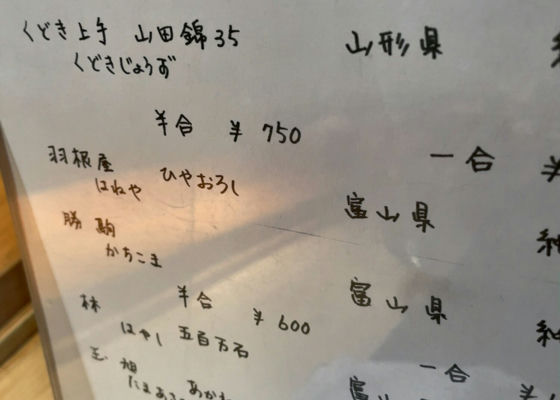 くどき上手 山田錦35 山形県
くどきじょうず
半合 ¥750 一合 ¥
羽根屋 ひやおろし 富山県
はねや
勝駒 富山県
かちこま
半合 ¥600 一合
林 五百万石
はやし